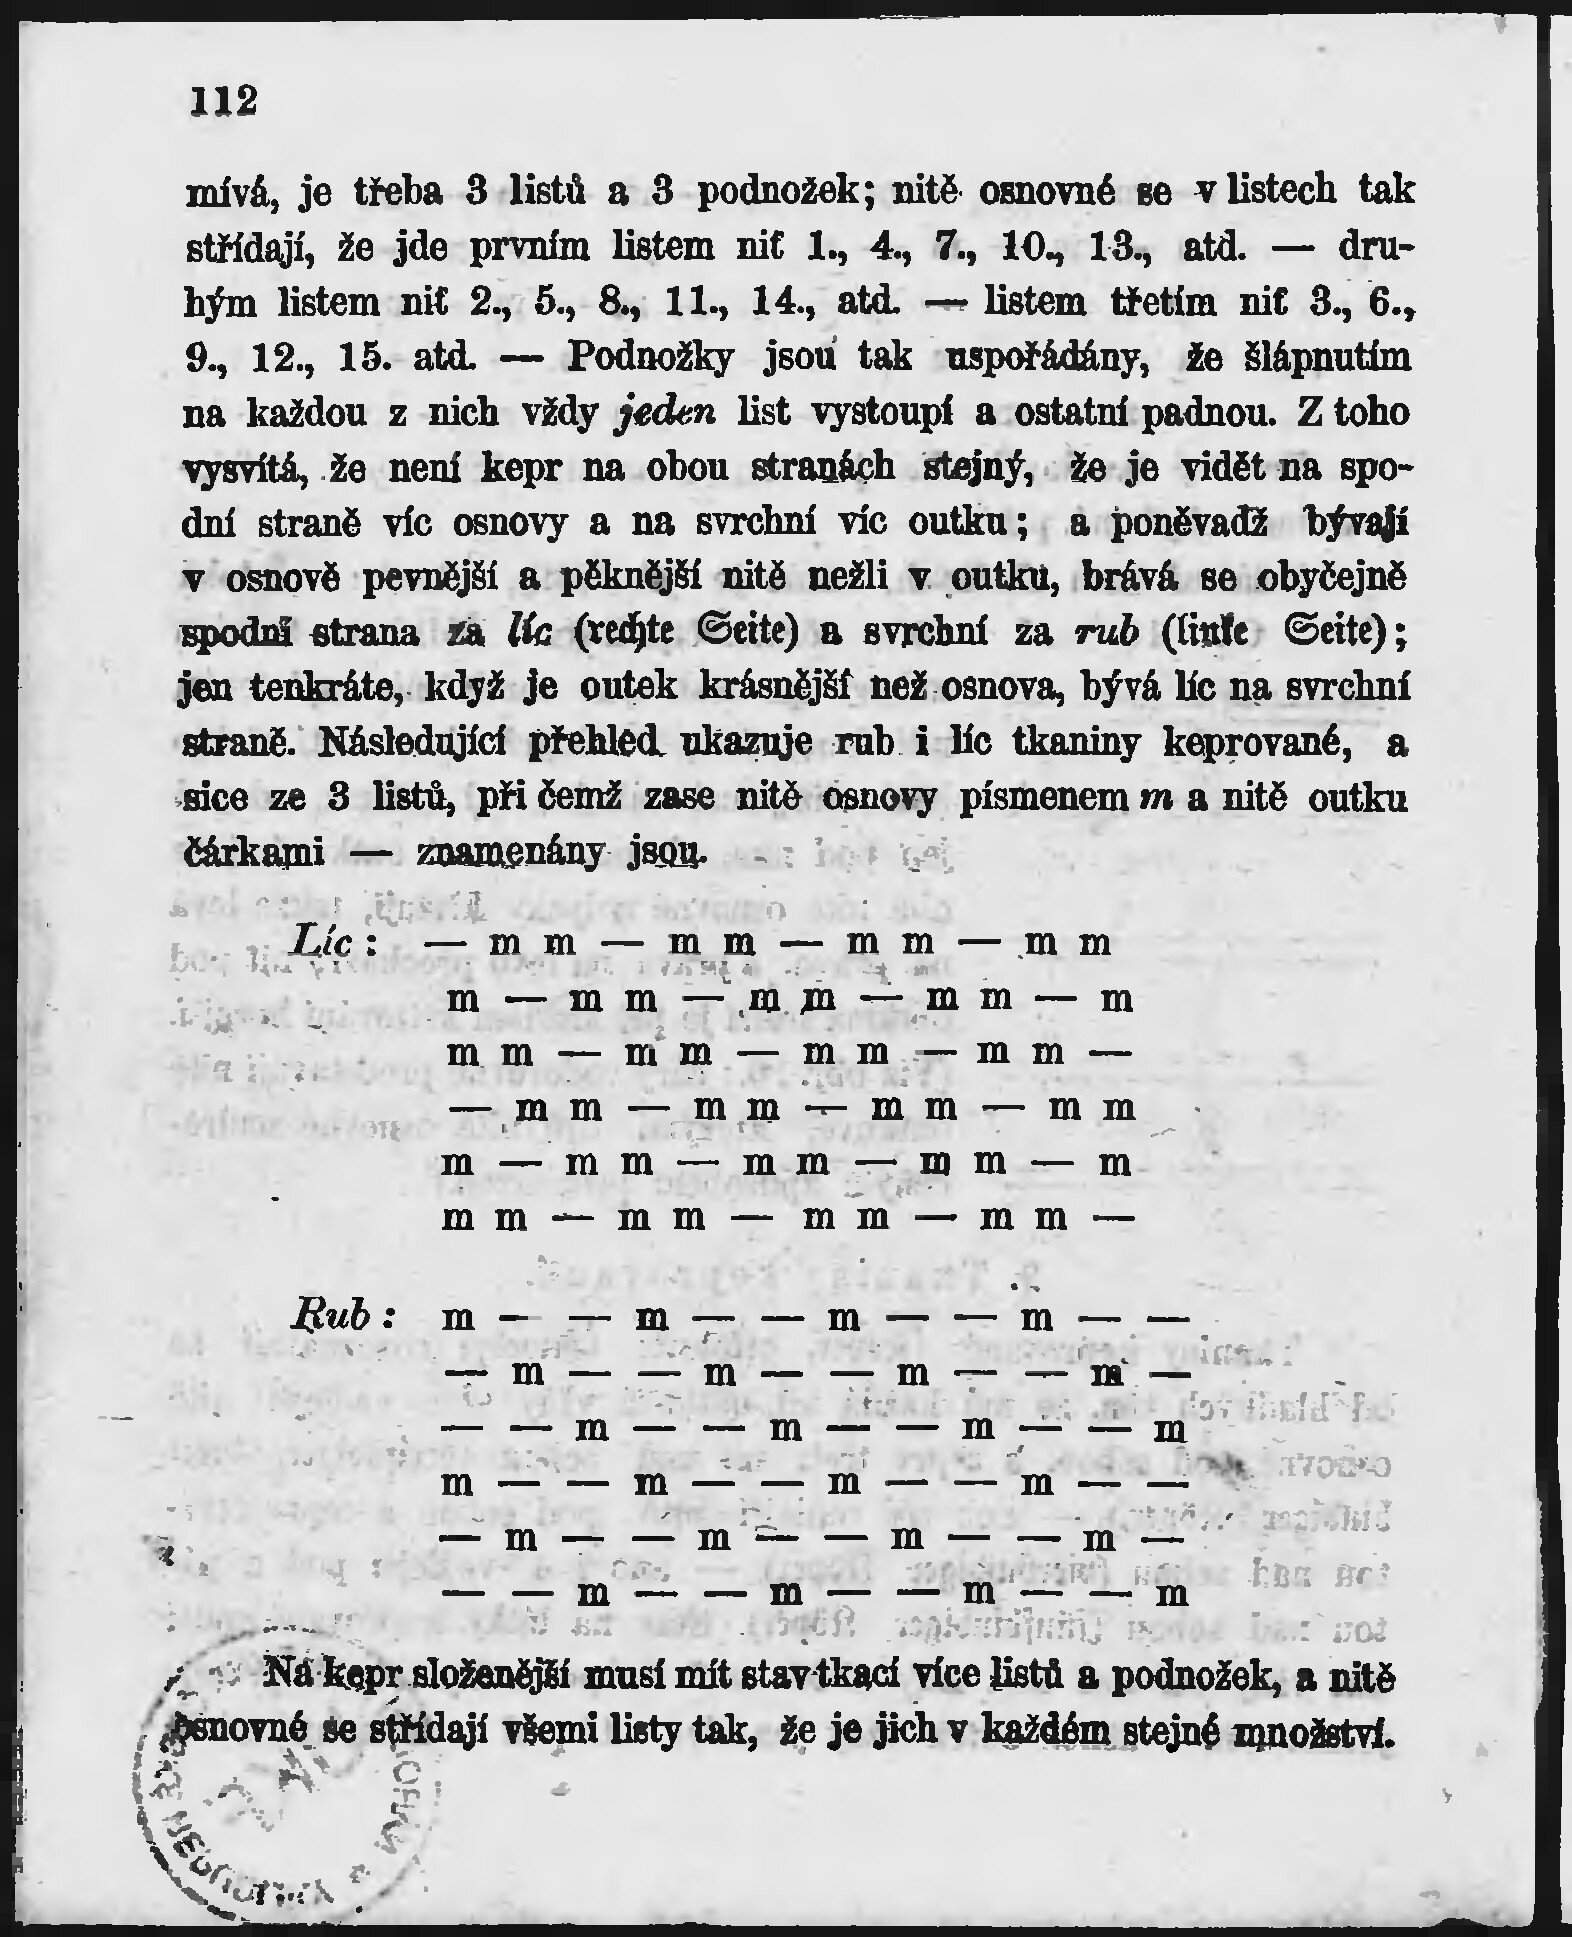 112
mívá, je třeba 3 listů a 3 podnožek; nitě osnovné se v listech tak
střídají, že jde prvním listem niť 1., 4., 7., 10., 13., atd. — dru-
hým listem niť 2., 5., 8., 11., 14., atd. — listem třetím niť 3., 6.,
9., 12., 15. atd. — Podnožky jsou tak uspořádány, že šlápnutím
na každou z nich vždy jeden list vystoupí a ostatní padnou. Z toho
vysvítá, že není kepr na obou stranách stejný, že je vidět na spo-
dní straně víc osnovy a na svrchní víc outku; a poněvadž bývají
v osnově pevnější a pěknější nitě nežli v outku, brává se obyčejně
spodní strana za líc (rechte Seite) a svrchní za rub (linke Seite);
jen tenkráte, když je outek krásnější než osnova, bývá líc na svrchní
straně. Následující přehled ukazuje rub i líc tkaniny keprované, a
sice ze 3 listů, při čemž zase nitě osnovy písmenem m a nitě outku
čárkami — znamenány jsou.
Líc: — m m — m m — m m — m m
m — m m — m m — m m — m
m m — m m — m m — m m —
— m m — m m — m m — m m
m — m m — m m — m m — m
m m — m m — m m — m m —
Rub: m — — m — — m — — m — —
— m — — m — — m — — m —
— — m — — m — — m — — m
m — — m — — m — — m — —
— m — — m — — m — — m —
— — m — — m — — m — — m
Na kepr složenější musí mít stav tkací více listů a podnožek, a nitě
osnovné se střídají všemi listy tak, že je jich v každém stejné množství.